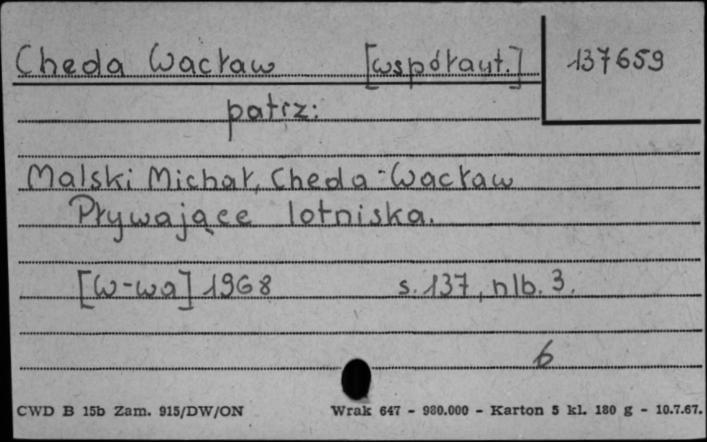 Cheda Wacław [współaut.] 137659
patrz:
Malski Michał, Cheda Wacław
Pływające lotniska.
[W-wa] 1968 s. 137, nlb. 3.
6
CWD B 15b Zam. 915/DW/ON Wrak 647 - 980.000 - Karton 5 kl. 180 g - 10.7.67.